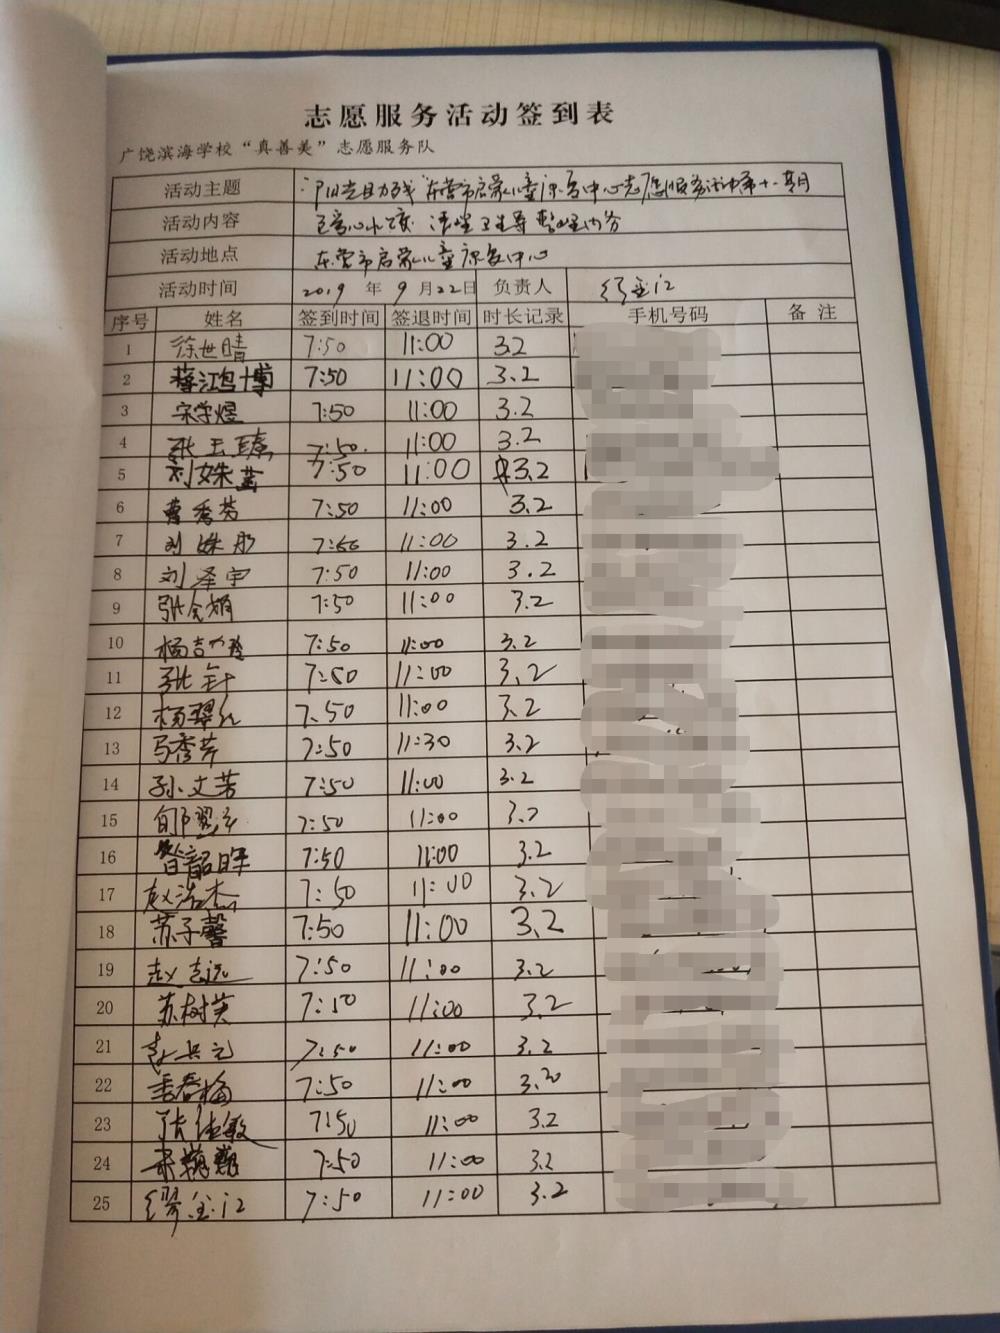 志愿服务活动签到表
广饶滨海学校“真善美”志愿服务队
活动主题 “阳光助残”东营市启蒙儿童康复中心志愿服务活动第十一期
活动内容 清理卫生等 整理内务
活动地点 东营市启蒙儿童康复中心
活动时间 2019 年 9 月 22 日 负责人 缪金江
序号 姓名 签到时间 签退时间 时长记录 手机号码 备注
1 徐世晴 7:50 11:00 3.2
2 蒋鸿博 7:50 11:00 3.2
3 宋学煜 7:50 11:00 3.2
4 张玉 7:50 11:00 3.2
5 刘姝 7:50 11:00 3.2
6 曹秀芳 7:50 11:00 3.2
7 刘姝彤 7:50 11:00 3.2
8 刘泽宇 7:50 11:00 3.2
9 张会娟 7:50 11:00 3.2
10 杨吉 7:50 11:00 3.2
11 张针 7:50 11:00 3.2
12 杨翠红 7:50 11:00 3.2
13 马秀芹 7:50 11:30 3.2
14 孙文芳 7:50 11:00 3.2
15 7:50 11:00 3.2
16 韶 7:50 11:00 3.2
17 赵浩杰 7:50 11:00 3.2
18 苏子馨 7:50 11:00 3.2
19 赵志远 7:50 11:00 3.2
20 苏树英 7:50 11:00 3.2
21 7:50 11:00 3.2
22 季春梅 7:50 11:00 3.20
23 张佳敏 7:50 11:00 3.2
24 7:50 11:00 3.2
25 缪金江 7:50 11:00 3.2